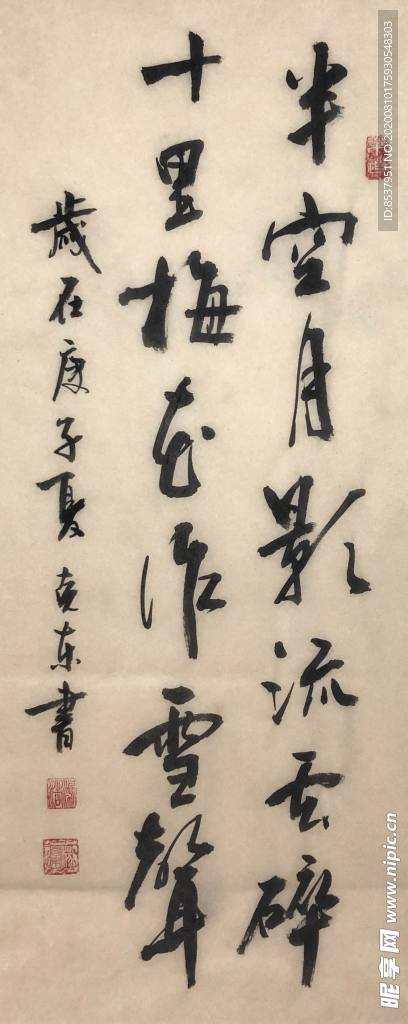 半空月影流云碎
十里梅花作雪聲
歲在庚子夏 克东書
ID:8537951 NO:20200810175930548303
昵享网 www.nipic.cn